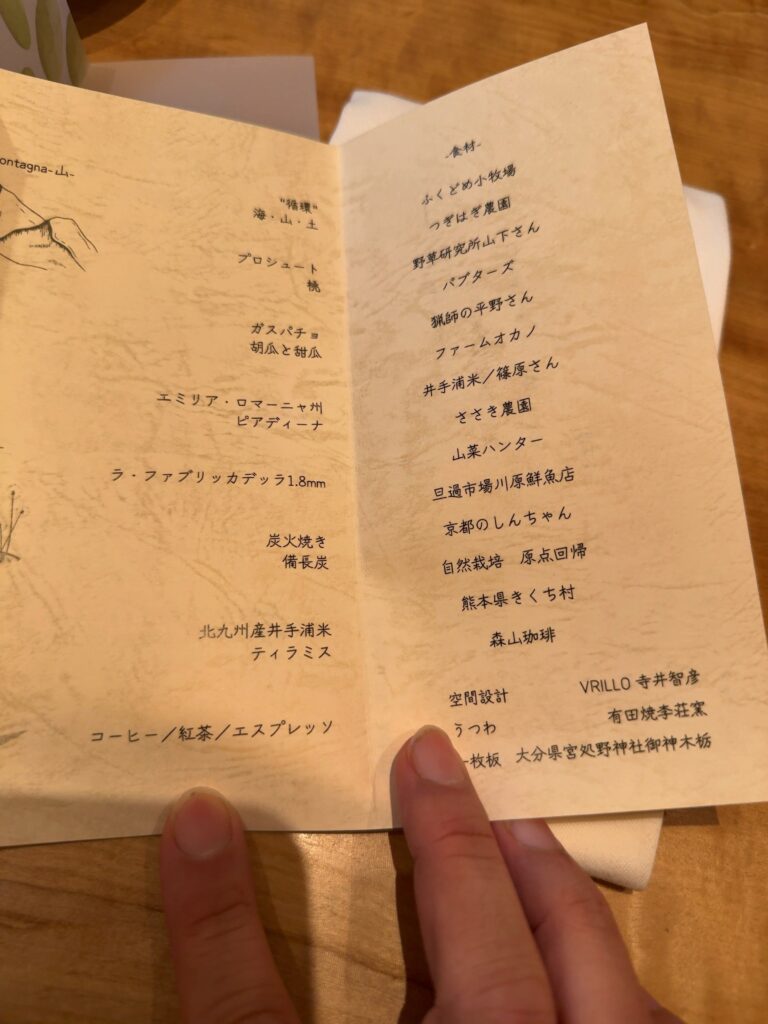 ontagna-山-
"循環"
海・山・土
プロシュート
桃
ガスパチョ
胡瓜と甜瓜
エミリア・ロマーニャ州
ピアディーナ
ラ・ファブリッカデッラ1.8mm
炭火焼き
備長炭
北九州産井手浦米
ティラミス
コーヒー／紅茶／エスプレッソ
-食材-
ふくどめ小牧場
つぎはぎ農園
野草研究所山下さん
パプターズ
猟師の平野さん
ファームオカノ
井手浦米／篠原さん
ささき農園
山菜ハンター
旦過市場川原鮮魚店
京都のしんちゃん
自然栽培　原点回帰
熊本県きくち村
森山珈琲
空間設計　VRILLO 寺井智彦
うつわ　有田焼李荘窯
一枚板　大分県宮処野神社御神木栃